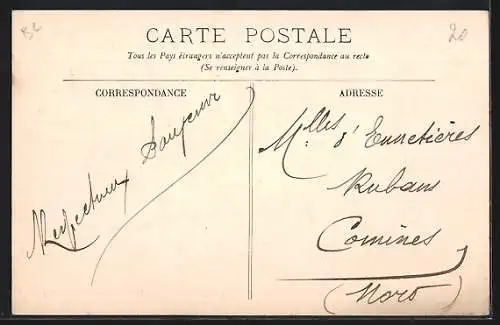 CARTE POSTALE
Tous les Pays étrangers n'acceptent pas la Correspondance au recto
(Se renseigner à la Poste).
CORRESPONDANCE
ADRESSE
20
Mlles d'Ennetières
Rubans
Comines
(Nord)